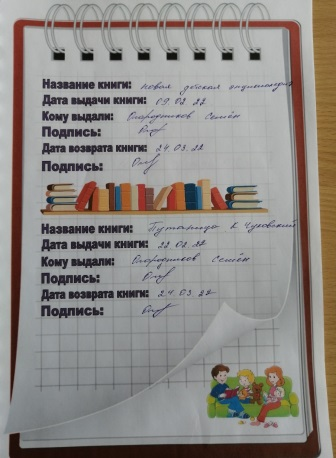 Название книги: новая детская энциклопедия
Дата выдачи книги: 09.02.22
Кому выдали: Огородников Семён
Подпись:
Дата возврата книги: 24.03.22
Подпись:
Название книги: Путаница К. Чуковский
Дата выдачи книги: 22.02.22
Кому выдали: Огородников Семён
Подпись:
Дата возврата книги: 24.03.22
Подпись: